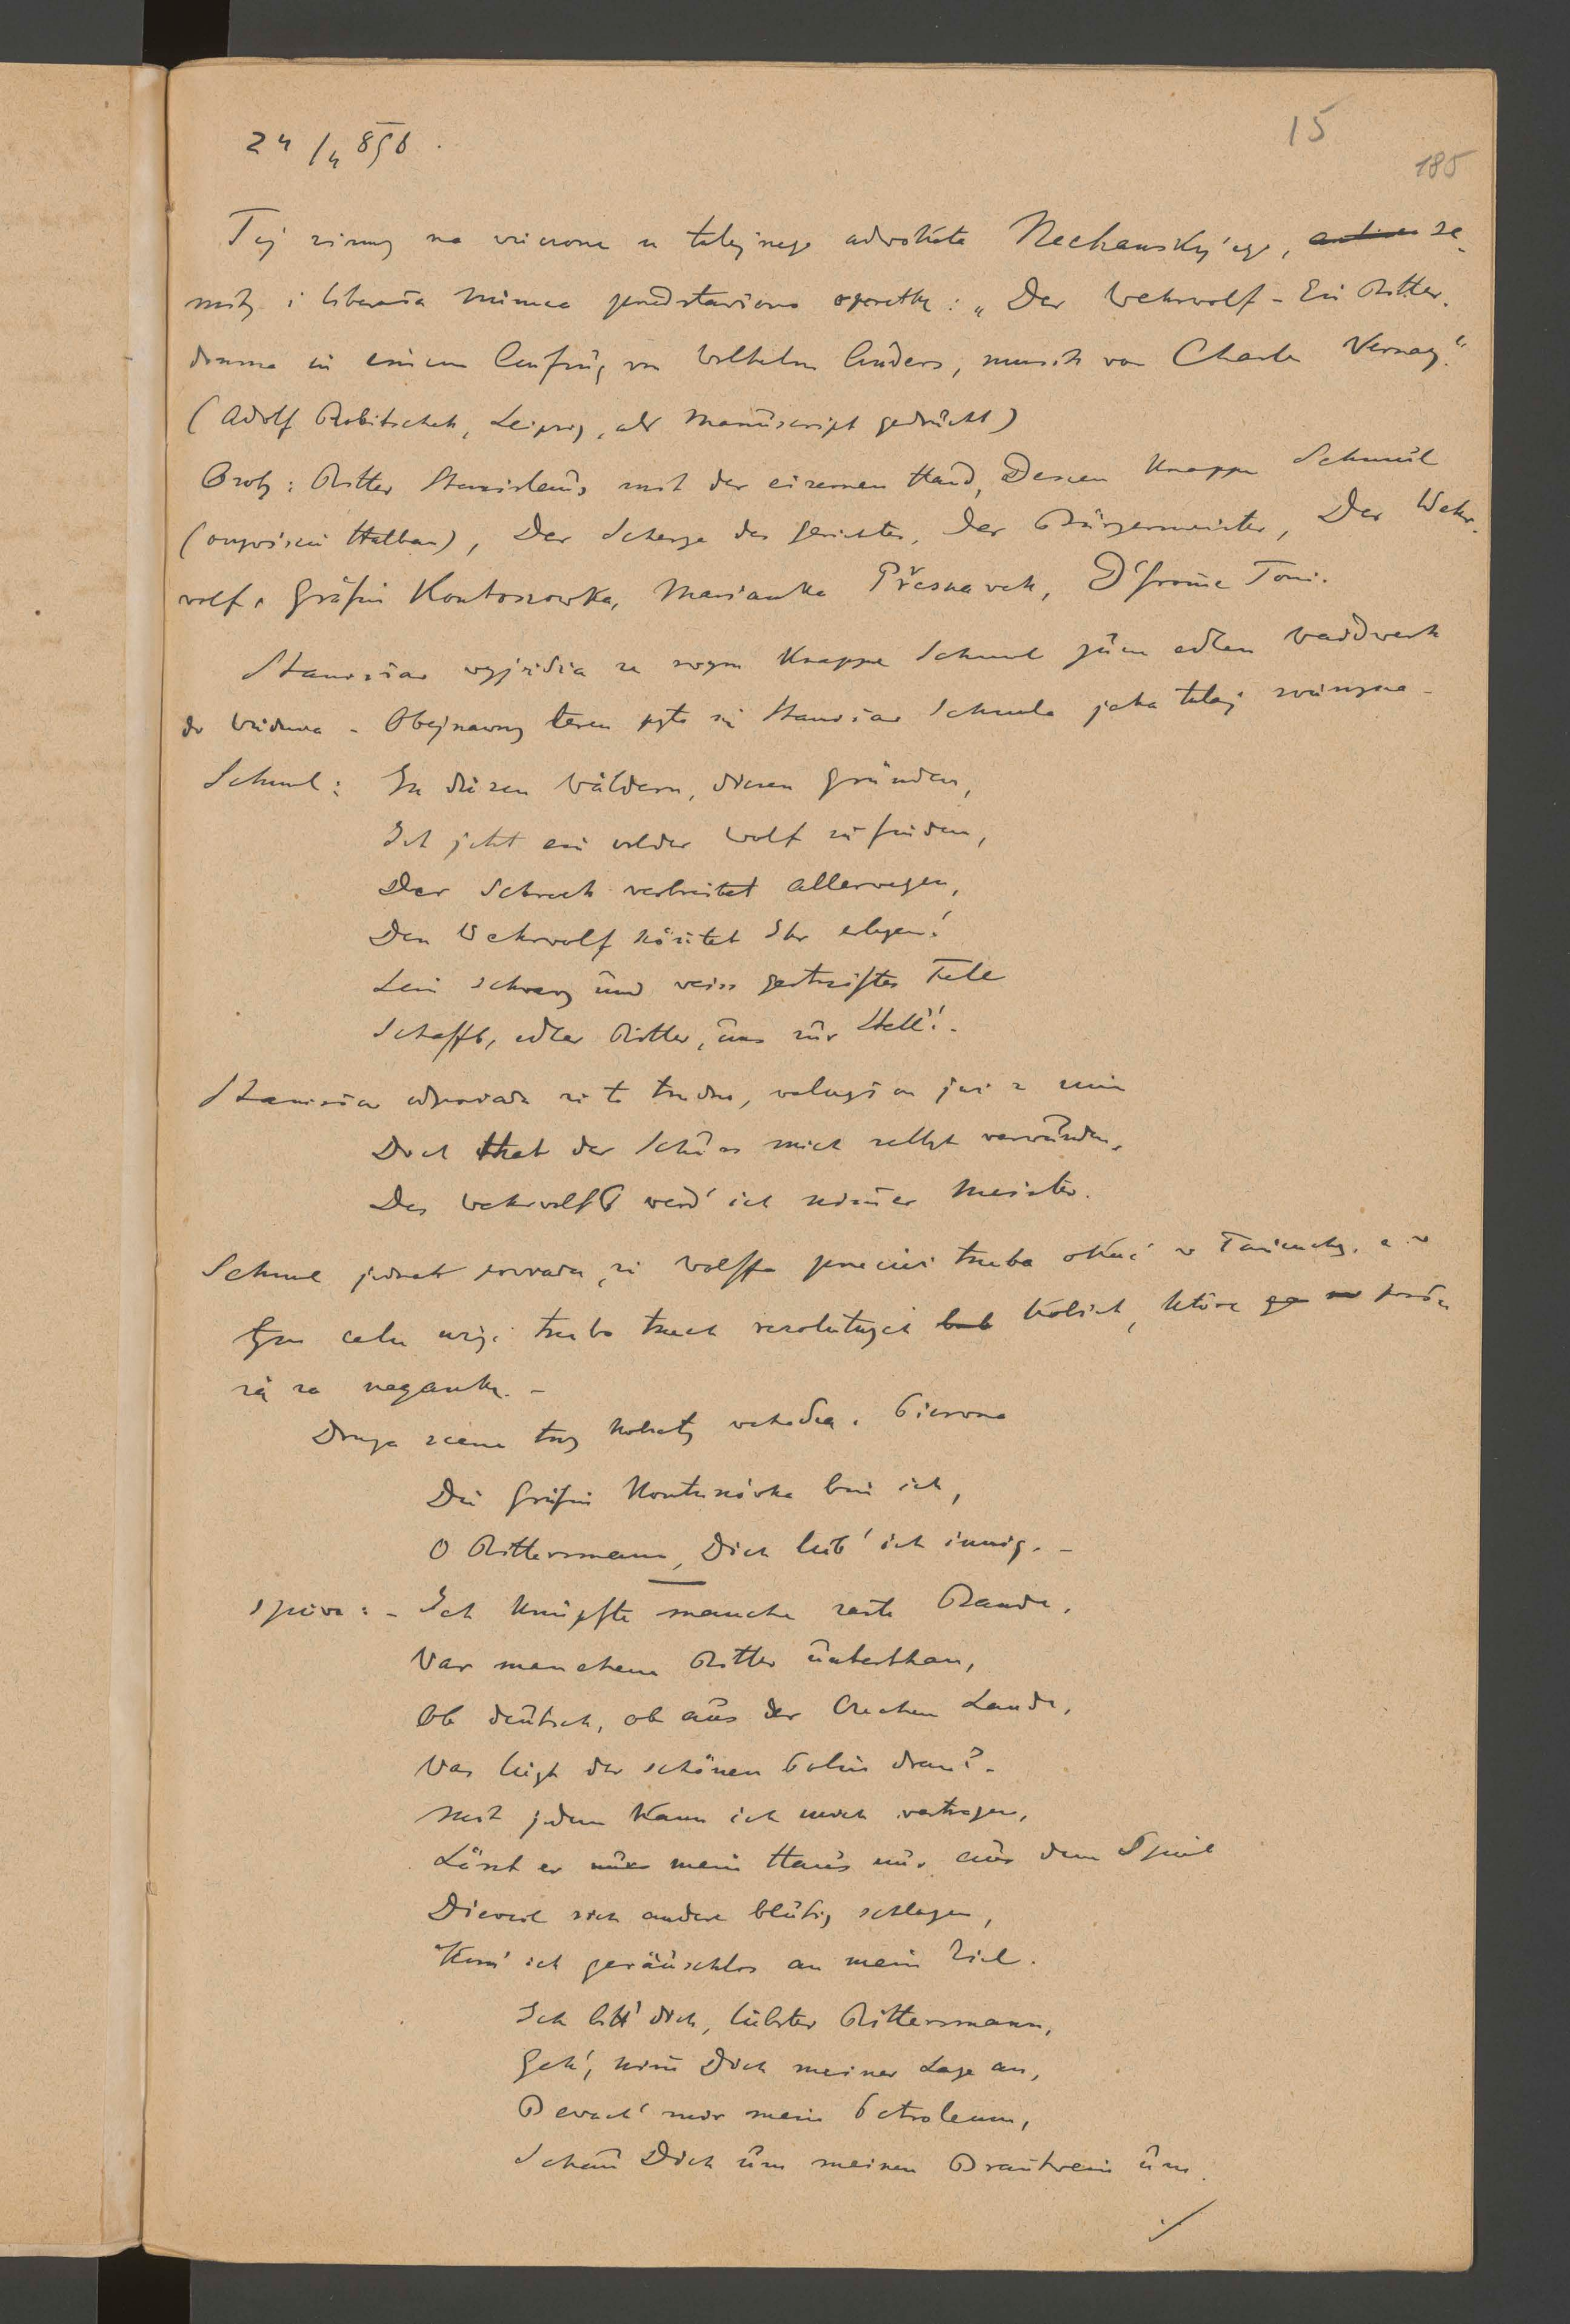 24/4 898.
15
185
Tej zimy na wieczorze u tutejszego adwokata Nechansky'ego, se-
mity i liberała Niemca przedstawiono operetkę: „Der Wehrwolf - Ein Ritter-
drama in einem Aufzug von Wilhelm Anders, musik von Charles Vernay."
(Adolf Robitschek, Leipzig, als Manuscript gedruckt)
Osoby: Ritter Stanislaus mit der eisernen Hand, Dessen Knappe Schmul
(oczywiście Halban), Der Scherge des Gerichtes, Der Bürgermeister, Der Wehr-
wolf, Gräfin Kontoszowka, Marianka Přesnavek, D'fromme Toni.
Stanisław wyjeżdża ze swym Knappe Schmul zum edlen Waidwerk
do Wiednia - Obejrzawszy teren pyta się Stanisław Schmula jaka tutaj zwierzyna -
Schmul: In diesen Wäldern, diesen Gründen,
Ist jetzt ein wilder Wolf zu finden,
Der Schreck verbreitet allerwegen,
Den Wehrwolf könntet Ihr erlegen!
Sein schwarz und weiss gestreiftes Fell
Schafft, edler Ritter, uns zur Stell'! -
Stanisław odpowiada że to trudno, walczył on już z nim
Doch that der Schuss mich selbst verwunden,
Des Wehrwolfs werd' ich nimmer Meister.
Schmul jednak powiada, że Wolffa przecież trzeba okuć w łańcuchy, a w
tym celu użyć trzeba trzech rezolutnych kobiet, które posłu
żą za nagankę. -
Druga scena trzy kobiety wchodzą. Pierwsza
Die Gräfin Kontuszówka bin ich,
O Rittersmann, Dich lieb' ich innig. -
śpiewa: - Ich knüpfte manche zarte Bande,
War manchem Ritter unterthan,
Ob deutsch, ob aus der Czechen Lande,
Was liegt der schönen Polin dran? -
Mit jedem kann ich mich vertragen,
Lässt er mein Haus nur aus dem Spiel
Dieweil sich andere blutig schlagen,
Komm' ich geräuschlos an mein Ziel.
Ich bitt' dich, liebster Rittersmann,
Geh', nimm Dich meiner Lage an,
Bewach' mir mein Petroleum,
Schau Dich um meinen Brantwein um.
./